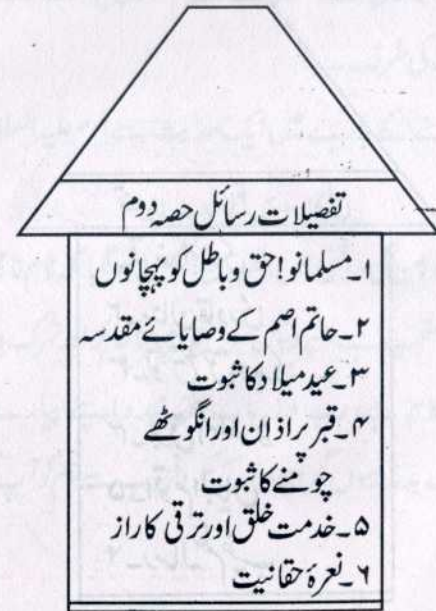 تفصیلات رسائل حصہ دوم
۱۔ مسلمانو! حق و باطل کو پہچانوں
۲۔ حاتم اصم کے وصایائے مقدسہ
۳۔ عید میلاد کا ثبوت
۴۔ قبر پر اذان اور انگوٹھے
چومنے کا ثبوت
۵۔ خدمت خلق اور ترقی کا راز
۶۔ نعرۂ حقانیت